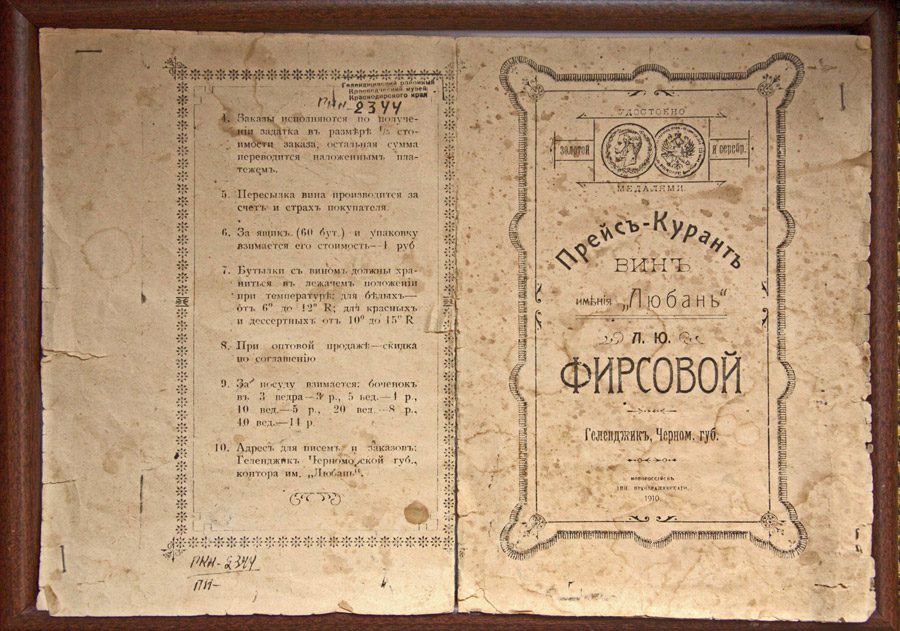 Геленджикский районный
Краеведческий музей
Краснодарского края
2344
4. Заказы исполняются по получе-
ніи задатка въ размѣрѣ ⅓ сто-
имости заказа, остальная сумма
переводится наложеннымъ пла-
тежемъ.
5. Пересылка вина производится за
счетъ и страхъ покупателя.
6. За ящикъ (60 бут.) и упаковку
взимается его стоимость—1 руб
7. Бутылки съ виномъ должны хра-
ниться въ лежачемъ положеніи
при температурѣ: для бѣлыхъ—
отъ 6° до 12° R; для красныхъ
и дессертныхъ отъ 10° до 15° R
8. При оптовой продажѣ—скидка
по соглашенію
9. За посуду взимается: боченокъ
въ 3 ведра—3 р., 5 вед.—4 р.,
10 вед.—5 р., 20 вед.—8 р.,
40 вед.—14 р
10. Адресъ для писемъ и заказовъ:
Геленджик Черноморской губ.,
контора им. „Любань".
РКН-2344
ПИ-
УДОСТОЕНО
золотой и серебр.
МЕДАЛЯМИ
Прейсъ-Курантъ
ВИНЪ
имѣнія „Любань"
Л. Ю.
ФИРСОВОЙ
Геленджикъ, Черном. губ.
НОВОРОССІЙСКЪ
1910